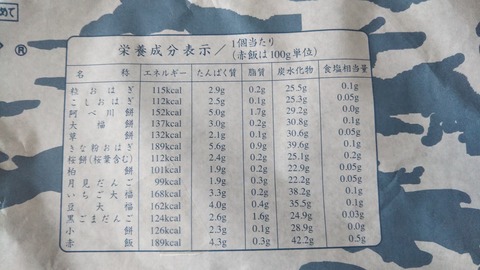 めて
®
栄養成分表示/1個当たり
(赤飯は100g単位)
名称 エネルギー たんぱく質 脂質 炭水化物 食塩相当量
粒おはぎ 115kcal 2.9g 0.2g 25.5g 0.1g
こしおはぎ 112kcal 2.5g 0.1g 25.3g 0.05g
阿べ川餅 152kcal 5.0g 1.7g 29.2g 0.0g
大福餅 137kcal 3.0g 0.2g 30.8g 0.1g
草餅 132kcal 2.1g 0.1g 30.6g 0.05g
きな粉おはぎ 189kcal 5.6g 0.9g 39.6g 0.1g
桜餅(桜葉含む) 112kcal 2.4g 0.2g 25.1g 0.2g
柏餅 101kcal 1.9g 0.2g 22.9g 0.05g
月見だんご 99kcal 1.9g 0.3g 22.2g 0.05g
いちご大福 168kcal 3.3g 0.2g 38.2g 0.1g
豆大福 162kcal 4.0g 0.4g 35.5g 0.1g
黒ごまだんご 124kcal 2.6g 1.6g 24.9g 0.03g
小餅 126kcal 2.3g 0.1g 28.9g 0.0g
赤飯 189kcal 4.3g 0.3g 42.2g 0.5g